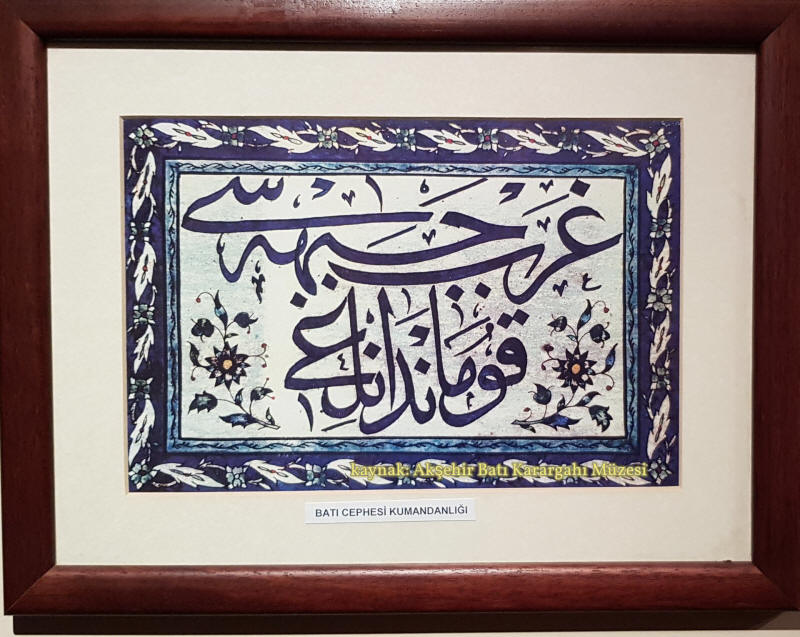 غرب جبهه سی
قوماندانلغی
kaynak: Akşehir Batı Karargahı Müzesi
BATI CEPHESİ KUMANDANLIĞI